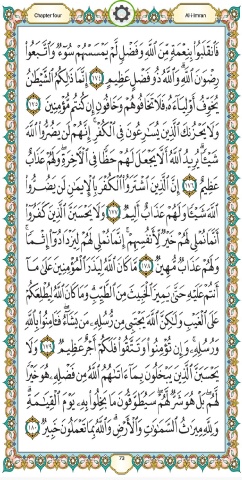 Chapter four
Al-Imran
فَٱنقَلَبُوا۟ بِنِعْمَةٍ مِّنَ ٱللَّهِ وَفَضْلٍ لَّمْ يَمْسَسْهُمْ سُوٓءٌ وَٱتَّبَعُوا۟
رِضْوَٰنَ ٱللَّهِ ۗ وَٱللَّهُ ذُو فَضْلٍ عَظِيمٍ ١٧٤ إِنَّمَا ذَٰلِكُمُ ٱلشَّيْطَٰنُ
يُخَوِّفُ أَوْلِيَآءَهُۥ فَلَا تَخَافُوهُمْ وَخَافُونِ إِن كُنتُم مُّؤْمِنِينَ ١٧٥
وَلَا يَحْزُنكَ ٱلَّذِينَ يُسَٰرِعُونَ فِى ٱلْكُفْرِ ۚ إِنَّهُمْ لَن يَضُرُّوا۟ ٱللَّهَ
شَيْـًٔا ۗ يُرِيدُ ٱللَّهُ أَلَّا يَجْعَلَ لَهُمْ حَظًّا فِى ٱلْءَاخِرَةِ ۖ وَلَهُمْ عَذَابٌ
عَظِيمٌ ١٧٦ إِنَّ ٱلَّذِينَ ٱشْتَرَوُا۟ ٱلْكُفْرَ بِٱلْإِيمَٰنِ لَن يَضُرُّوا۟
ٱللَّهَ شَيْـًٔا وَلَهُمْ عَذَابٌ أَلِيمٌ ١٧٧ وَلَا يَحْسَبَنَّ ٱلَّذِينَ كَفَرُوٓا۟
أَنَّمَا نُمْلِى لَهُمْ خَيْرٌ لِّأَنفُسِهِمْ ۚ إِنَّمَا نُمْلِى لَهُمْ لِيَزْدَادُوٓا۟ إِثْمًا ۚ
وَلَهُمْ عَذَابٌ مُّهِينٌ ١٧٨ مَّا كَانَ ٱللَّهُ لِيَذَرَ ٱلْمُؤْمِنِينَ عَلَىٰ مَآ
أَنتُمْ عَلَيْهِ حَتَّىٰ يَمِيزَ ٱلْخَبِيثَ مِنَ ٱلطَّيِّبِ ۗ وَمَا كَانَ ٱللَّهُ لِيُطْلِعَكُمْ
عَلَى ٱلْغَيْبِ وَلَٰكِنَّ ٱللَّهَ يَجْتَبِى مِن رُّسُلِهِۦ مَن يَشَآءُ ۖ فَـَٔامِنُوا۟ بِٱللَّهِ
وَرُسُلِهِۦ ۚ وَإِن تُؤْمِنُوا۟ وَتَتَّقُوا۟ فَلَكُمْ أَجْرٌ عَظِيمٌ ١٧٩ وَلَا
يَحْسَبَنَّ ٱلَّذِينَ يَبْخَلُونَ بِمَآ ءَاتَىٰهُمُ ٱللَّهُ مِن فَضْلِهِۦ هُوَ خَيْرًا
لَّهُم ۖ بَلْ هُوَ شَرٌّ لَّهُمْ ۖ سَيُطَوَّقُونَ مَا بَخِلُوا۟ بِهِۦ يَوْمَ ٱلْقِيَٰمَةِ ۗ
وَلِلَّهِ مِيرَٰثُ ٱلسَّمَٰوَٰتِ وَٱلْأَرْضِ ۗ وَٱللَّهُ بِمَا تَعْمَلُونَ خَبِيرٌ ١٨٠
73